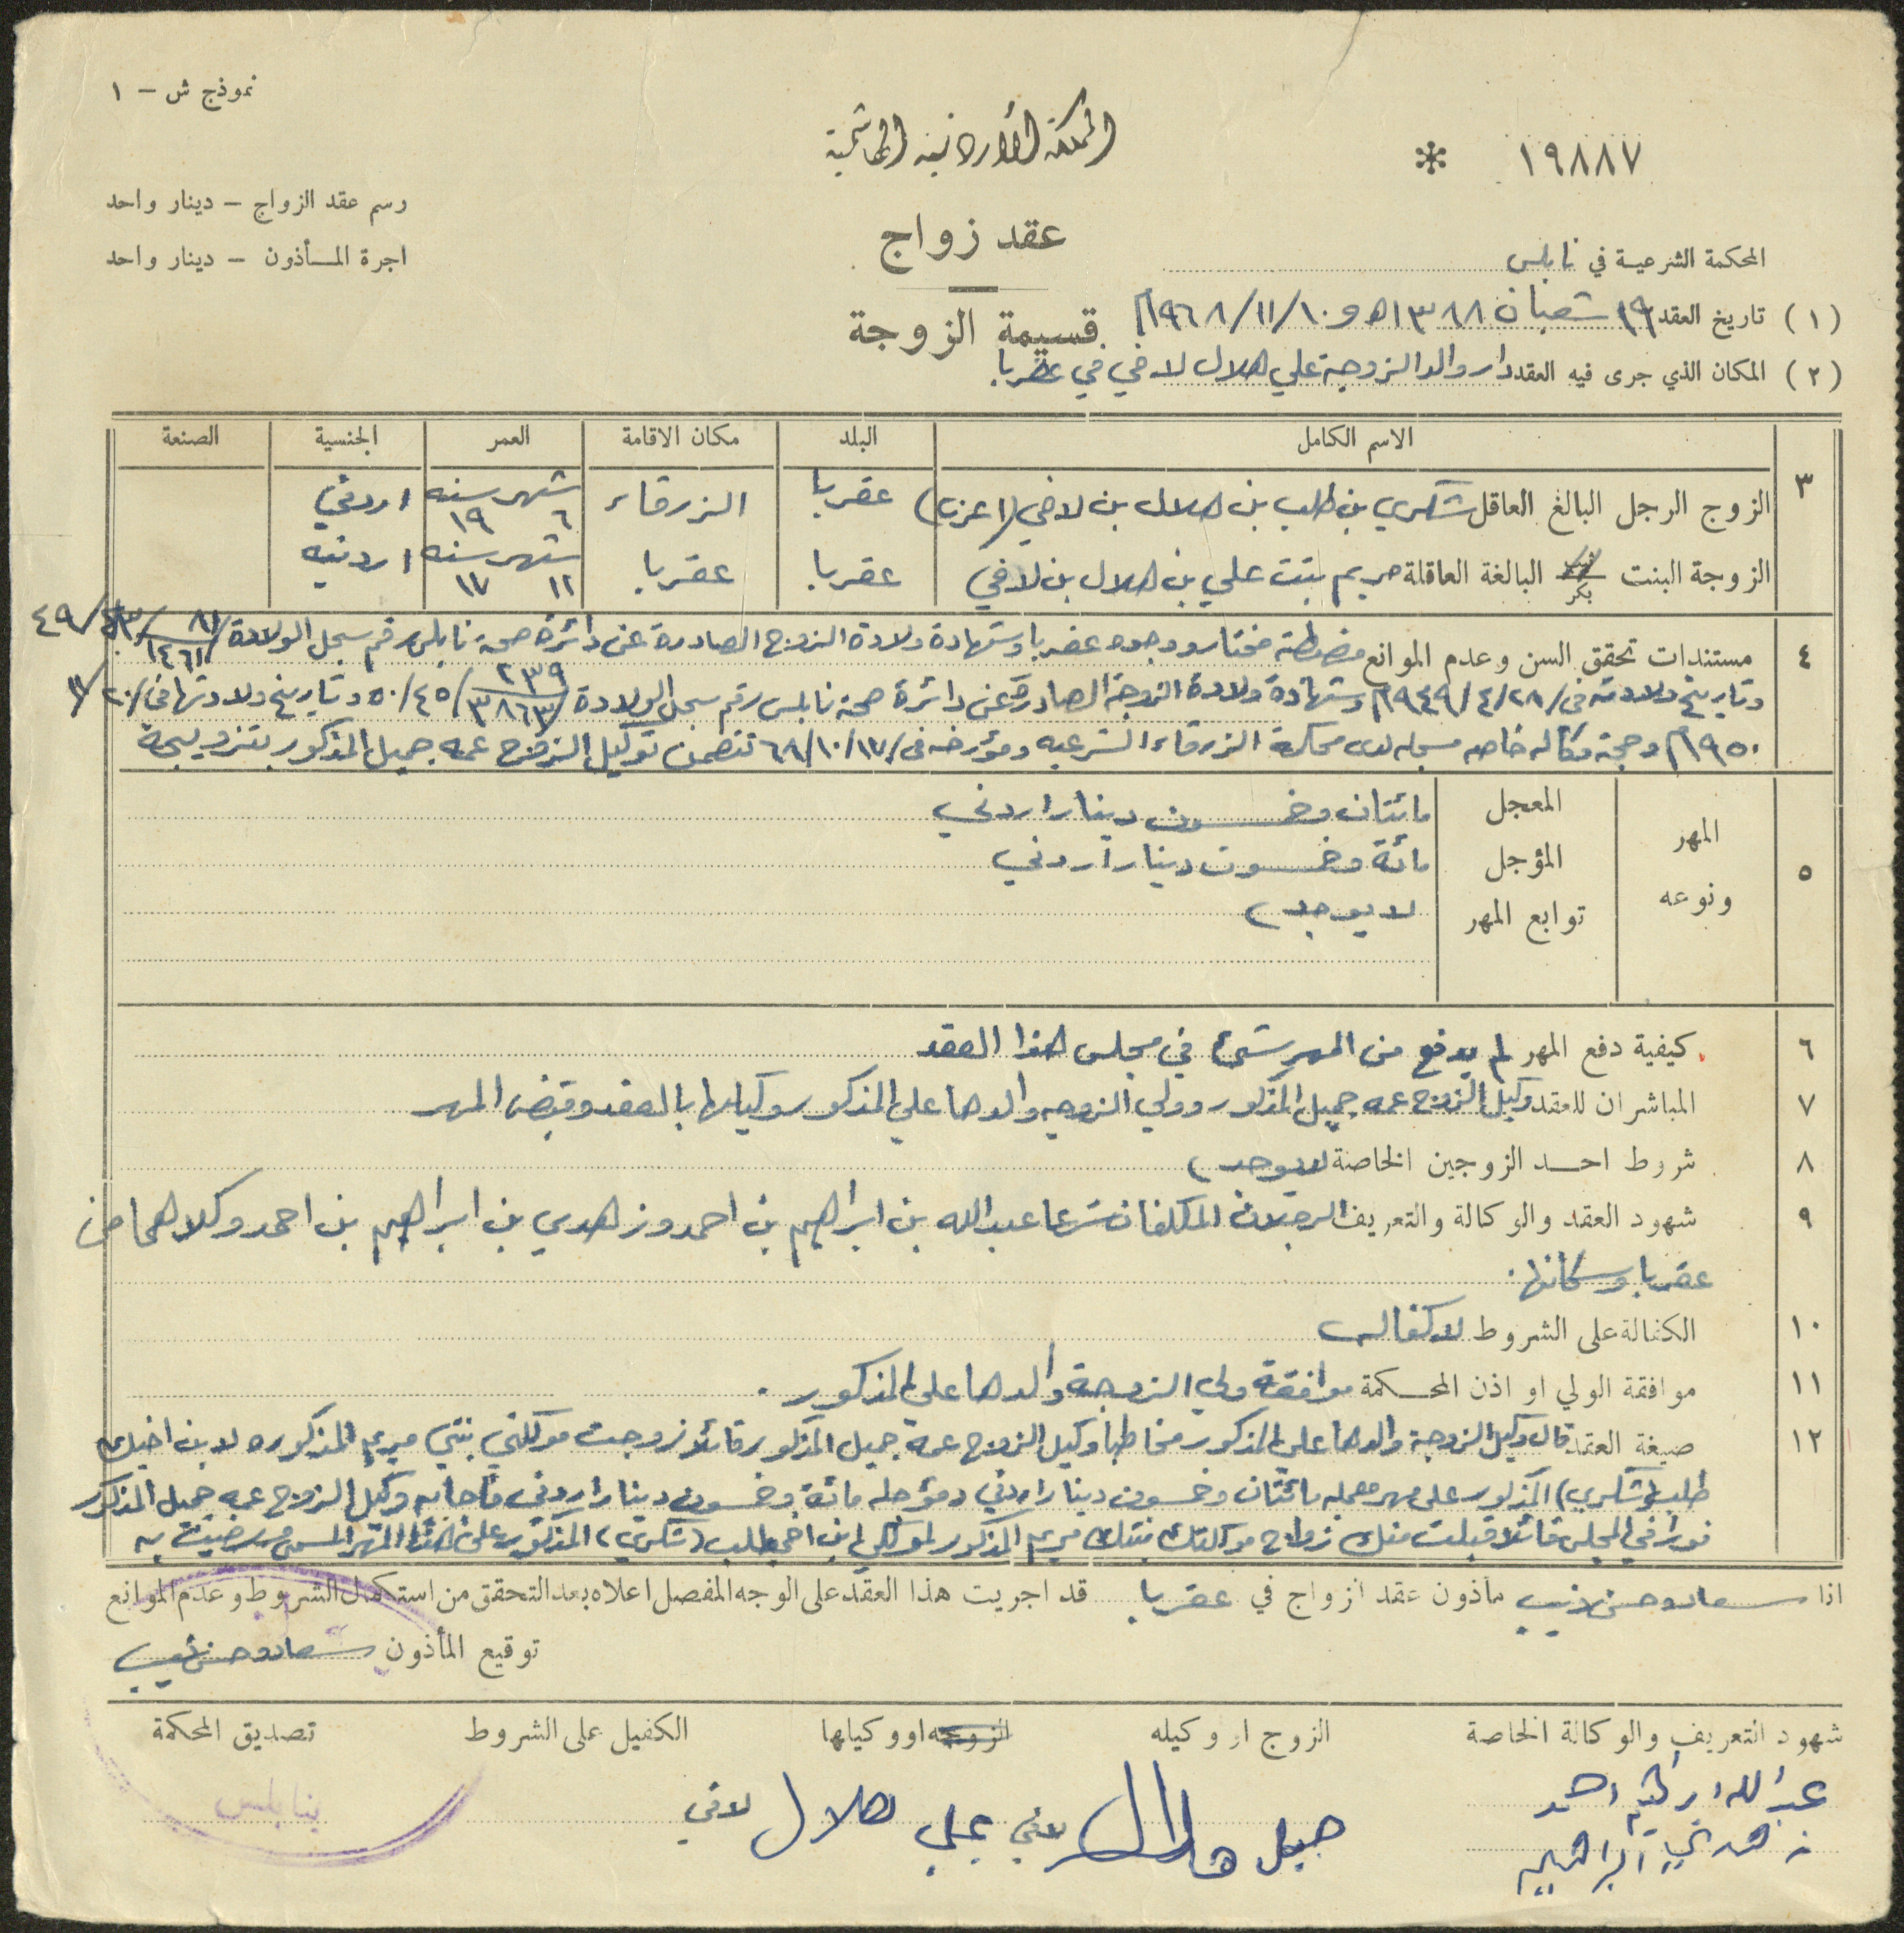 نموذج ش - ١
المملكة الأردنية الهاشمية
١٩٨٨٧ *
رسم عقد الزواج - دينار واحد
عقد زواج
اجرة المأذون - دينار واحد
المحكمة الشرعية في نابلس
قسيمة الزوجة
(١) تاريخ العقد ١٩ شعبان ١٣٨٨هـ و ١٠/١١/١٩٦٨م
(٢) المكان الذي جرى فيه العقد دار والد الزوجة علي هلال لافي في عقربا
الاسم الكامل البلد مكان الاقامة العمر الجنسية الصنعة
٣ الزوج الرجل البالغ العاقل شكري بن طلب بن هلال بن لافي (اعزب) عقربا الزرقاء شهر ٦ سنه ١٩ اردني
الزوجة البنت بكر البالغة العاقلة مريم بنت علي بن هلال بن لافي عقربا عقربا شهر ١١ سنه ١٧ اردنيه
٤ مستندات تحقق السن وعدم الموانع مضبطة مختار ووجوه عقربا وشهادة ولادة الزوج الصادرة عن دائرة صحة نابلس رقم سجل الولادة ٨١/١٤٦١ ٤٩
وتاريخ ولادته في ٢٨/٤/١٩٤٩م وشهادة ولادة الزوجة الصادرة عن دائرة صحة نابلس رقم سجل الولادة ٢٣٩/٣٨٦٣/٤٥/٥٠ وتاريخ ولادتها في ٢٠/١١/
١٩٥٠م وحجة وكاله خاصه مسجله لدى محكمة الزرقاء الشرعيه ومؤرخه في ١٧/١٠/٦٨ تتضمن توكيل الزوج عمه جميل المذكور بتزويجه
٥ المهر ونوعه
المعجل مائتان وخمسون دينارا اردني
المؤجل مائة وخمسون دينارا اردني
توابع المهر لا يوجد
٦ كيفية دفع المهر لم يدفع من المهر شيء في مجلس هذا العقد
٧ المباشران للعقد وكيل الزوج عمه جميل المذكور وولي الزوجه والدها علي المذكور وكيلها بالعقد وقبض المهر
٨ شروط احد الزوجين الخاصة لا يوجد
٩ شهود العقد والوكالة والتعريف الرجلان المكلفان شرعا عبدالله بن ابراهيم بن احمد وزهدي بن ابراهيم بن احمد وكلاهما من
عقربا وسكانها.
١٠ الكفالة على الشروط لا كفاله
١١ موافقة الولي او اذن المحكمة موافقة ولي الزوجة والدها علي المذكور.
١٢ صيغة العقد قال وكيل الزوجة والدها علي المذكور مخاطبا وكيل الزوج عمه جميل المذكور قائلا زوجت موكلتي بنتي مريم المذكوره لابن اخيك
طلب (شكري) المذكور على مهر معجله مائتان وخمسون دينارا اردني ومؤجله مائة وخمسون دينارا اردني فأجابه وكيل الزوج عمه جميل المذكور
فورا في المجلس قائلا قبلت منك زواج موكلتك بنتك مريم المذكور لموكلي ابن اخي طلب (شكري) المذكور على هذا المهر المسمى ورضيت به
انا سعادة حسن ذيب مأذون عقد ازواج في عقربا قد اجريت هذا العقد على الوجه المفصل اعلاه بعد التحقق من استكمال الشروط وعدم الموانع
توقيع المأذون
شهود التعريف والوكالة الخاصة الزوج او وكيله الزوجه او وكيلها الكفيل على الشروط تصديق المحكمة
عبدالله ابراهيم احمد جميل هلال لافي علي هلال لافي بنابلس
زهدي ابراهيم